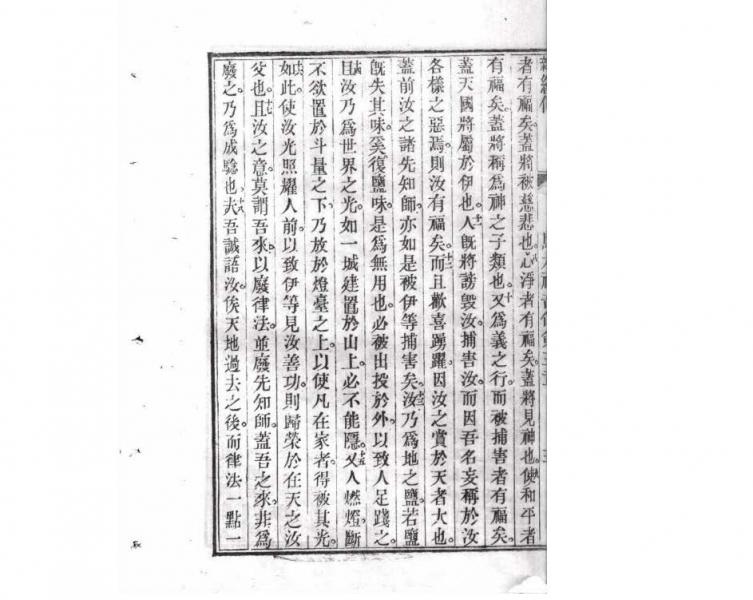 者有福矣。蓋將被慈悲也。八心淨者有福矣。蓋將見神也。九使和平者
有福矣。蓋將稱爲神之子類也。十又爲義之行。而被捕害者有福矣。
蓋天國將屬於伊也。十一人旣將謗毀汝。捕害汝。而因吾名妄稱於汝
各樣之惡焉。則汝有福矣。十二而且歡喜踴躍。因汝之賞於天者大也。
蓋前汝之諸先知師。亦如是被伊等捕害矣。十三汝乃爲地之鹽。若鹽
旣失其味。奚復鹽味。是爲無用也。必被出投於外。以致人足踐之。
十四且汝乃爲世界之光。如一城建置於山上。必不能隱。十五又人燃燈。斷
不欲置於斗量之下。乃放於燈臺之上。以使凡在家者。得被其光。
十六如此使汝光照耀人前。以致伊等見汝善功。則歸榮於在天之汝
父也。十七且汝之意。莫謂吾來以廢律法。並廢先知師。蓋吾之來。非爲
廢之。乃爲成驗也。十八夫吾誠語汝。俟天地過去之後。而律法一點一